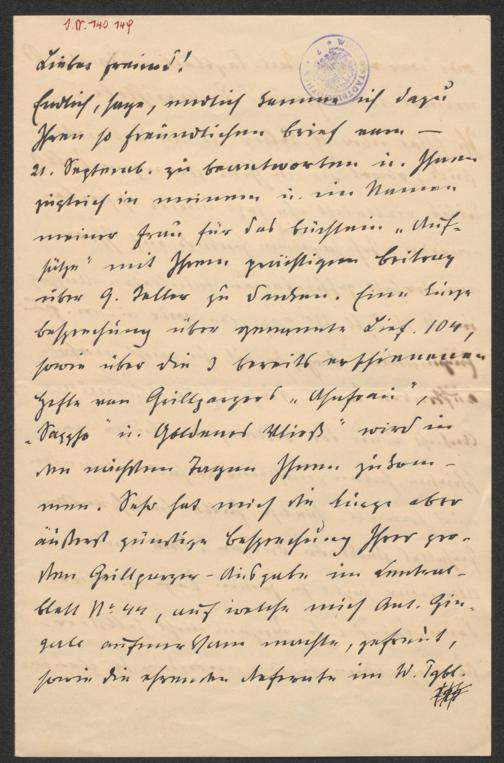 J.N. 140 149
Lieber Freund!
Endlich, sage, endlich komme ich dazu
Ihren so freundlichen Brief vom —
21. Septemb. zu beantworten u. Ihnen
zugleich in meinem u. im Namen
meiner Frau für das Büchlein „Auf-
sätze" mit Ihrem prächtigen Beitrag
über G. Keller zu danken. Eine kurze
Besprechung über genannte Lief. 104,
sowie über die 3 bereits erschienenen
Hefte von Grillparzers „Ahnfrau",
„Sappho" u. Goldenes Vließ" wird in
den nächsten Tagen Ihnen zukom-
men. Sehr hat mich die kurze aber
äußerst günstige Besprechung Ihrer gro-
ßen Grillparzer-Ausgabe im Central-
blatt No 44, auf welche mich Ant.
aufmerksam machte, gefreut,
sowie die ehrenden Referate im W. Tgbl.